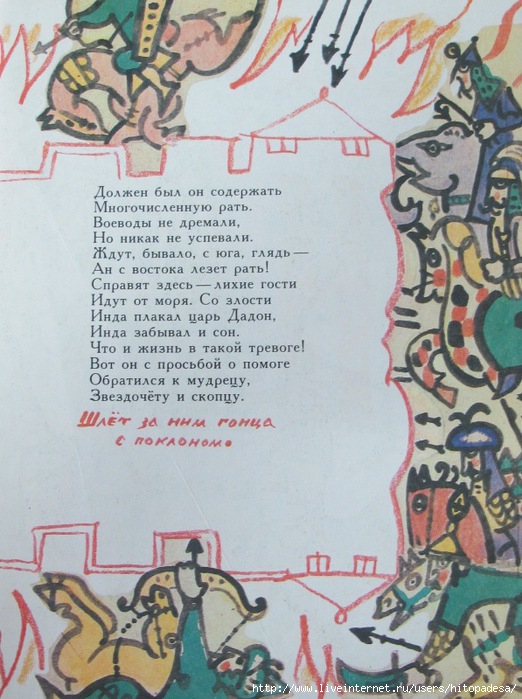 Должен был он содержать
Многочисленную рать.
Воеводы не дремали,
Но никак не успевали.
Ждут, бывало, с юга, глядь —
Ан с востока лезет рать!
Справят здесь — лихие гости
Идут от моря. Со злости
Инда плакал царь Дадон,
Инда забывал и сон.
Что и жизнь в такой тревоге!
Вот он с просьбой о помоге
Обратился к мудрецу,
Звездочёту и скопцу.
Шлёт за ним гонца
с поклоном.
http://www.liveinternet.ru/users/hitopadesa/